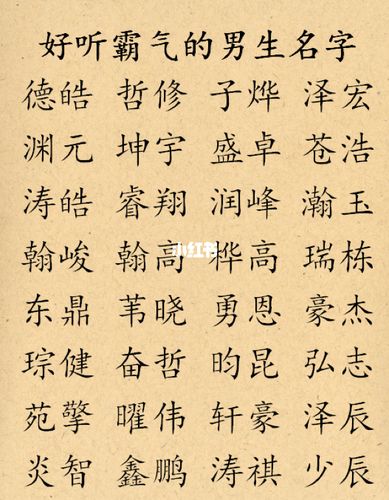 好听霸气的男生名字
德皓 哲修 子烨 泽宏
渊元 坤宇 盛卓 苍浩
涛皓 睿翔 润峰 瀚玉
翰峻 翰高 桦高 瑞栋
小红书
东鼎 苇晓 勇恩 豪杰
琮健 奋哲 昀昆 弘志
苑擎 曜伟 轩豪 泽辰
炎智 鑫鹏 涛祺 少辰